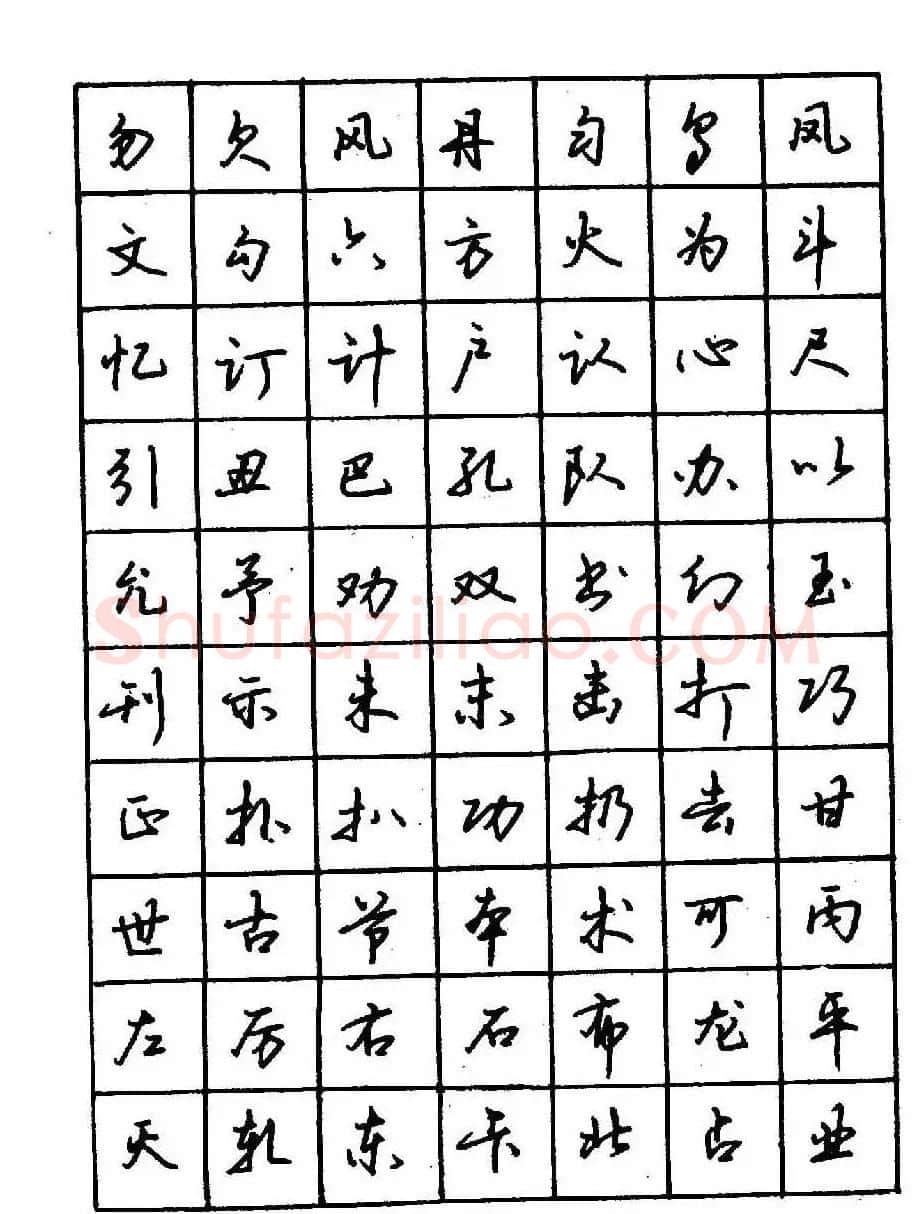 勿欠风丹匀乌凤
文勾六方火为斗
忆订计户认心尺
引丑巴孔队办以
允予劝双书幻玉
Shufaziliao.COM
刊示末未击打巧
正扑扒功扔去甘
世古节本术可丙
左厉右石布龙平
灭轧东卡北占业